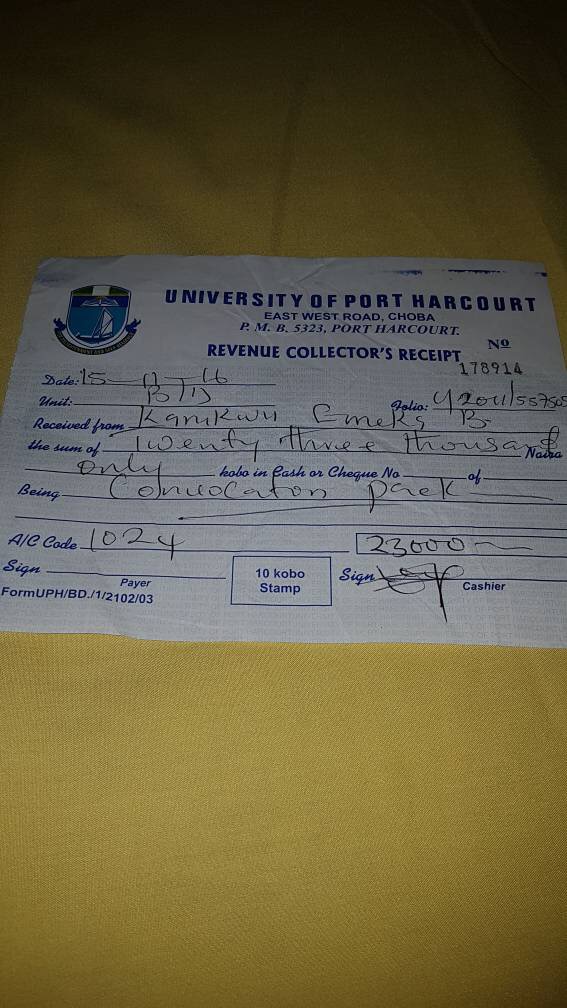 UNIVERSITY OF PORT HARCOURT
EAST WEST ROAD, CHOBA
P. M. B. 5323, PORT HARCOURT.
REVENUE COLLECTOR'S RECEIPT
Nº
178914
Date: 15 - 11 - 16
Unit:
Folio:
Received from Kanikwu Emeka B.
the sum of Twenty three thousand Naira
only kobo in Cash or Cheque No of
Being Convocation pack
A/C Code 1024 23000
Sign Payer
10 kobo Stamp
Sign Cashier
FormUPH/BD./1/2102/03